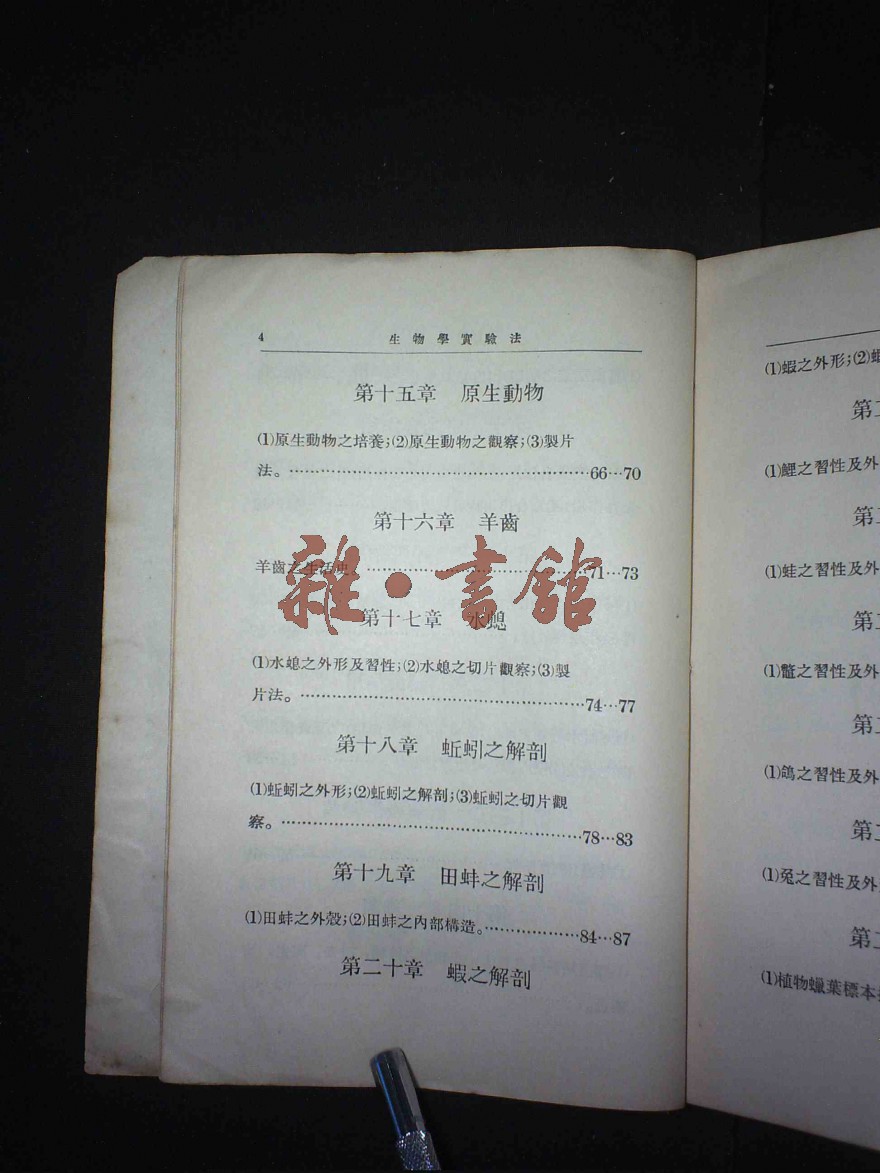 4 生物學實驗法
第十五章 原生動物
(1)原生動物之培養;(2)原生動物之觀察;(3)製片
法。…66…70
第十六章 羊齒
羊齒之生活史。…71…73
第十七章 水螅
(1)水螅之外形及習性;(2)水螅之切片觀察;(3)製
片法。…74…77
第十八章 蚯蚓之解剖
(1)蚯蚓之外形;(2)蚯蚓之解剖;(3)蚯蚓之切片觀
察。…78…83
第十九章 田蚌之解剖
(1)田蚌之外殼;(2)田蚌之內部構造。…84…87
第二十章 蝦之解剖
雜·書館
(1)蝦之外形;(2)
第二
(1)鯉之習性及外
第二
(1)蛙之習性及外
第二
(1)鼈之習性及外
第二
(1)鴿之習性及外
第二
(1)兔之習性及外
第二
(1)植物蠟葉標本